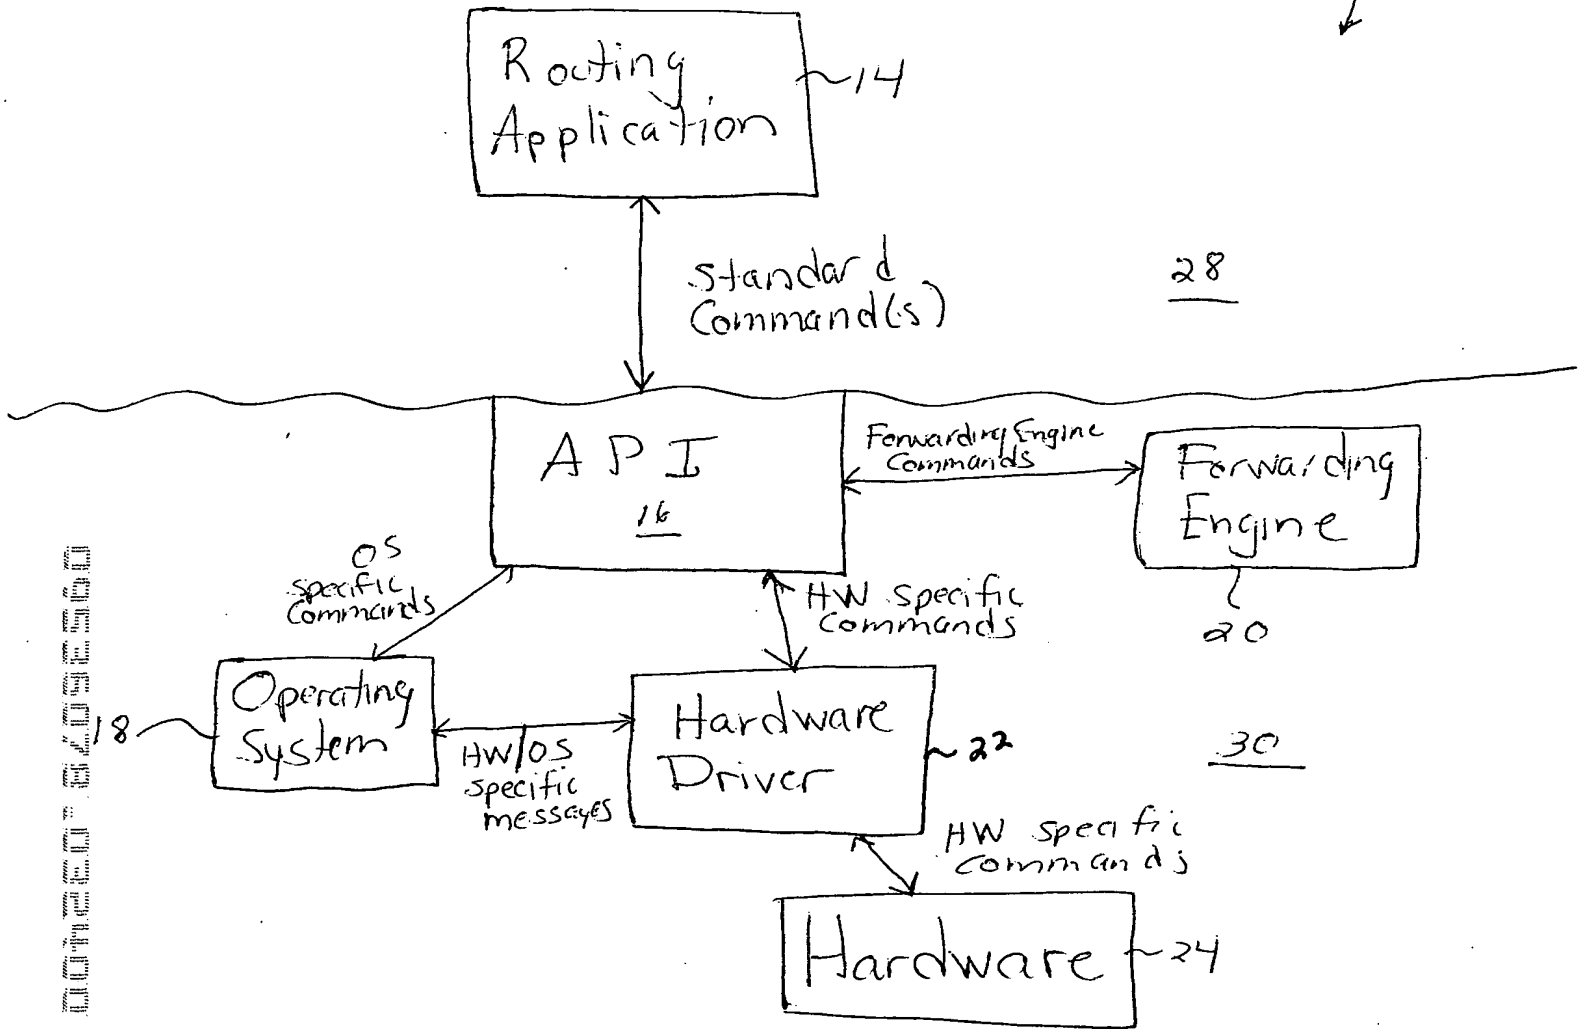 Routing
Application
14
Standard
Command(s)
28
API
16
Forwarding Engine
Commands
Forwarding
Engine
20
OS
specific
Commands
HW specific
Commands
Operating
System
18
HW/OS
specific
messages
Hardware
Driver
22
30
HW specific
Commands
Hardware
24
09536078.032400